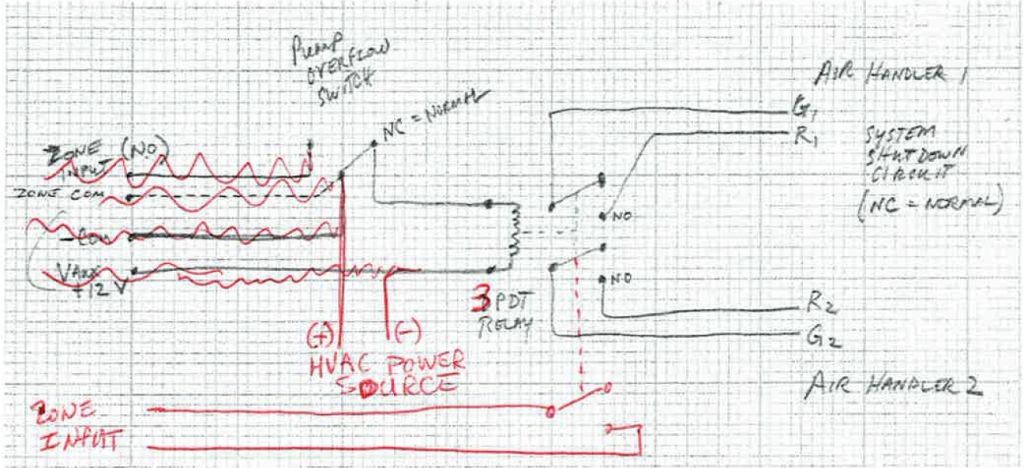 PUMP
OVERFLOW
SWITCH
NC = NORMAL
ZONE (NO)
INPUT
ZONE COM
-COM
VAUX
+12 V
(+) (-)
HVAC POWER
SOURCE
3PDT
RELAY
NO
NO
AIR HANDLER 1
G1
R1
SYSTEM
SHUTDOWN
CIRCUIT
(NC = NORMAL)
R2
G2
AIR HANDLER 2
ZONE
INPUT